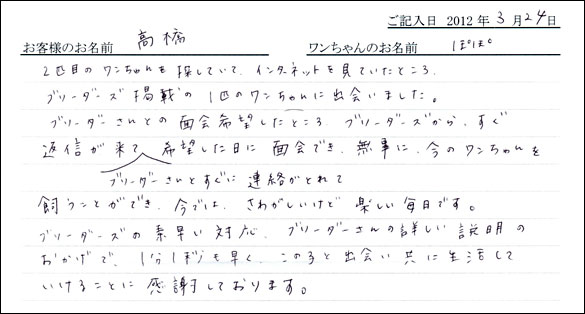 ご記入日 2012年3月24日
お客様のお名前 高橋 ワンちゃんのお名前 ぽぽ
2匹目のワンちゃんを探していて、インターネットを見ていたところ、
ブリーダーズ掲載の1匹のワンちゃんに出会いました。
ブリーダーさんとの面会希望したところ、ブリーダーズから、すぐ
返信が来て 希望した日に面会でき、無事に、今のワンちゃんを
ブリーダーさんとすぐに連絡がとれて
飼うことができ、今では、さわがしいけど楽しい毎日です。
ブリーダーズの素早い対応、ブリーダーさんの詳しい説明の
おかげで、1分1秒も早く、この子と出会い共に生活して
いけることに感謝しております。